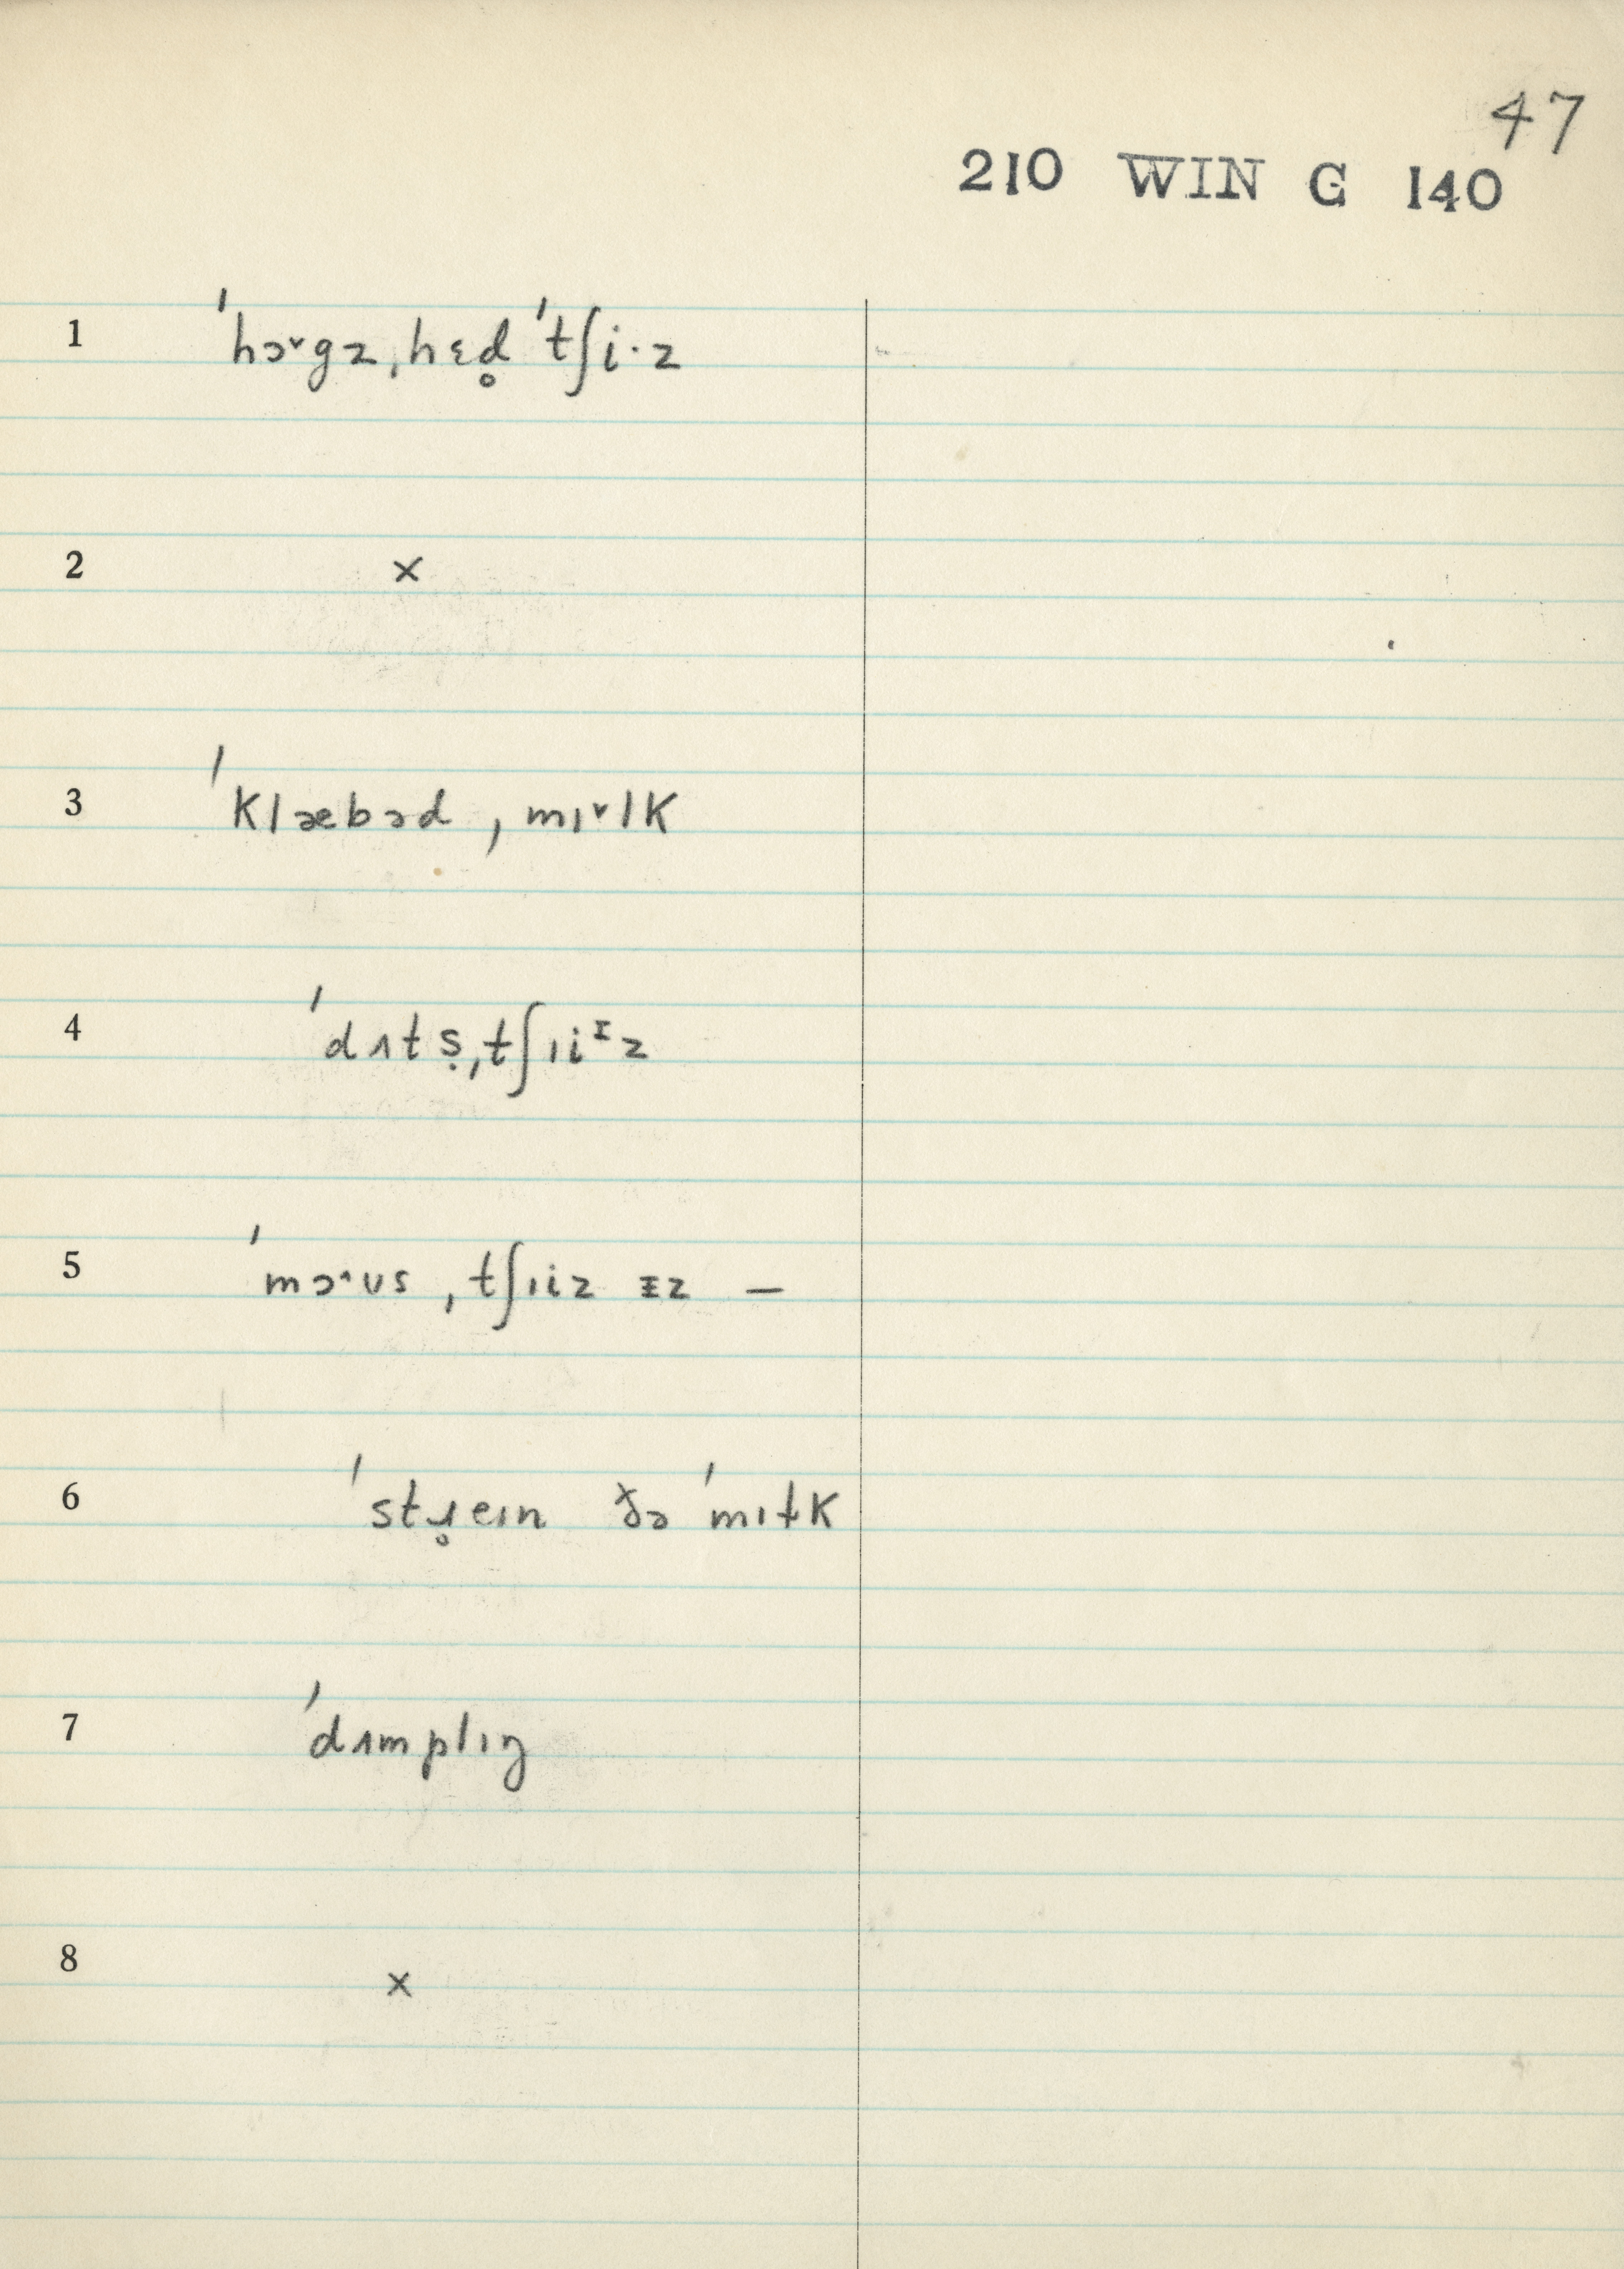 47
210 WIN G 140
1 ˈhɔ˅gz ˌhɛd̥ ˈtʃi·z
2 ×
3 ˈklæbəd ˌmɪ˅lk
4 ˈdʌtṣ ˌtʃɪiᶦz
5 ˈmɔ˄ʊs ˌtʃɪiz ᵻz —
6 ˈstɹ̥eɪn ðə ˈmɪɫk
7 ˈdʌmplɪŋ
8 ×